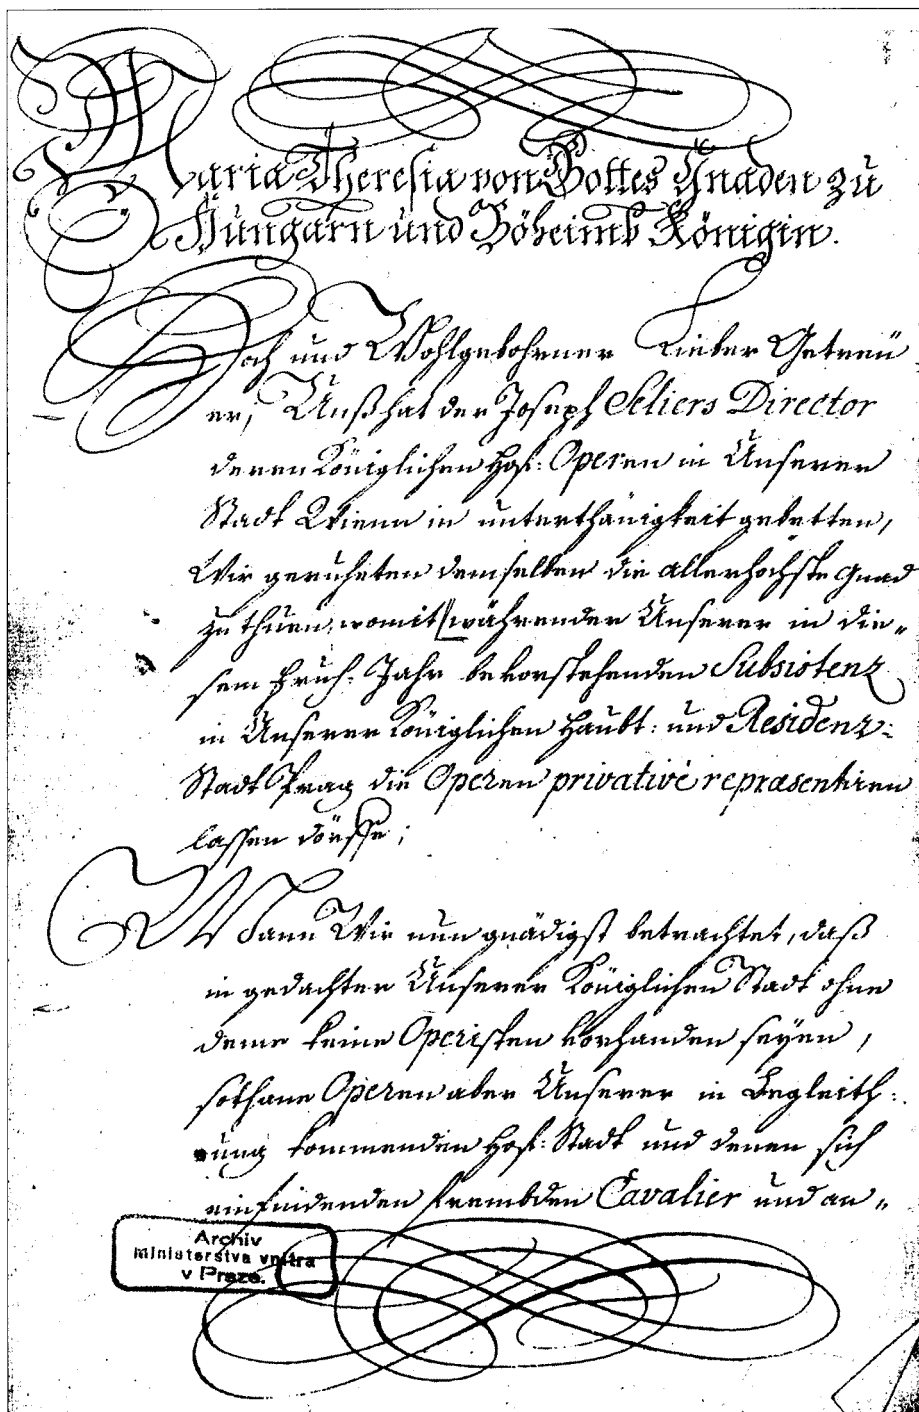 Maria Theresia von Gottes Gnaden zu
Hungarn und Böheimb Königin.
Hoch und Wohlgebohrner Lieber Getreü
er, Unß hat der Joseph Seliers Director
deren Königlichen Hof: Operen in Unserer
Stadt Wienn in unterthänigkeit gebetten,
Wir geruheten demselben die allerhöchste Gnad
zu thuen, womit währender Unserer in die„
sem Fruh-Jahr bevorstehenden Subsistenz
in Unserer Königlichen Haubt: und Residenz:
Stadt Prag die Operen privativè repræsentiren
lassen dörffe;
Wann Wir nun gnädigst betrachtet, daß
in gedachter Unserer Königlichen Stadt ohne
deme keine Operisten vorhanden seyen,
sothane Operen aber Unserer in Begleith:
ung kommenden Hof: Stadt und denen sich
einfindenden frembden Cavalier und an„
Archiv
ministerstva vnitra
v Praze.